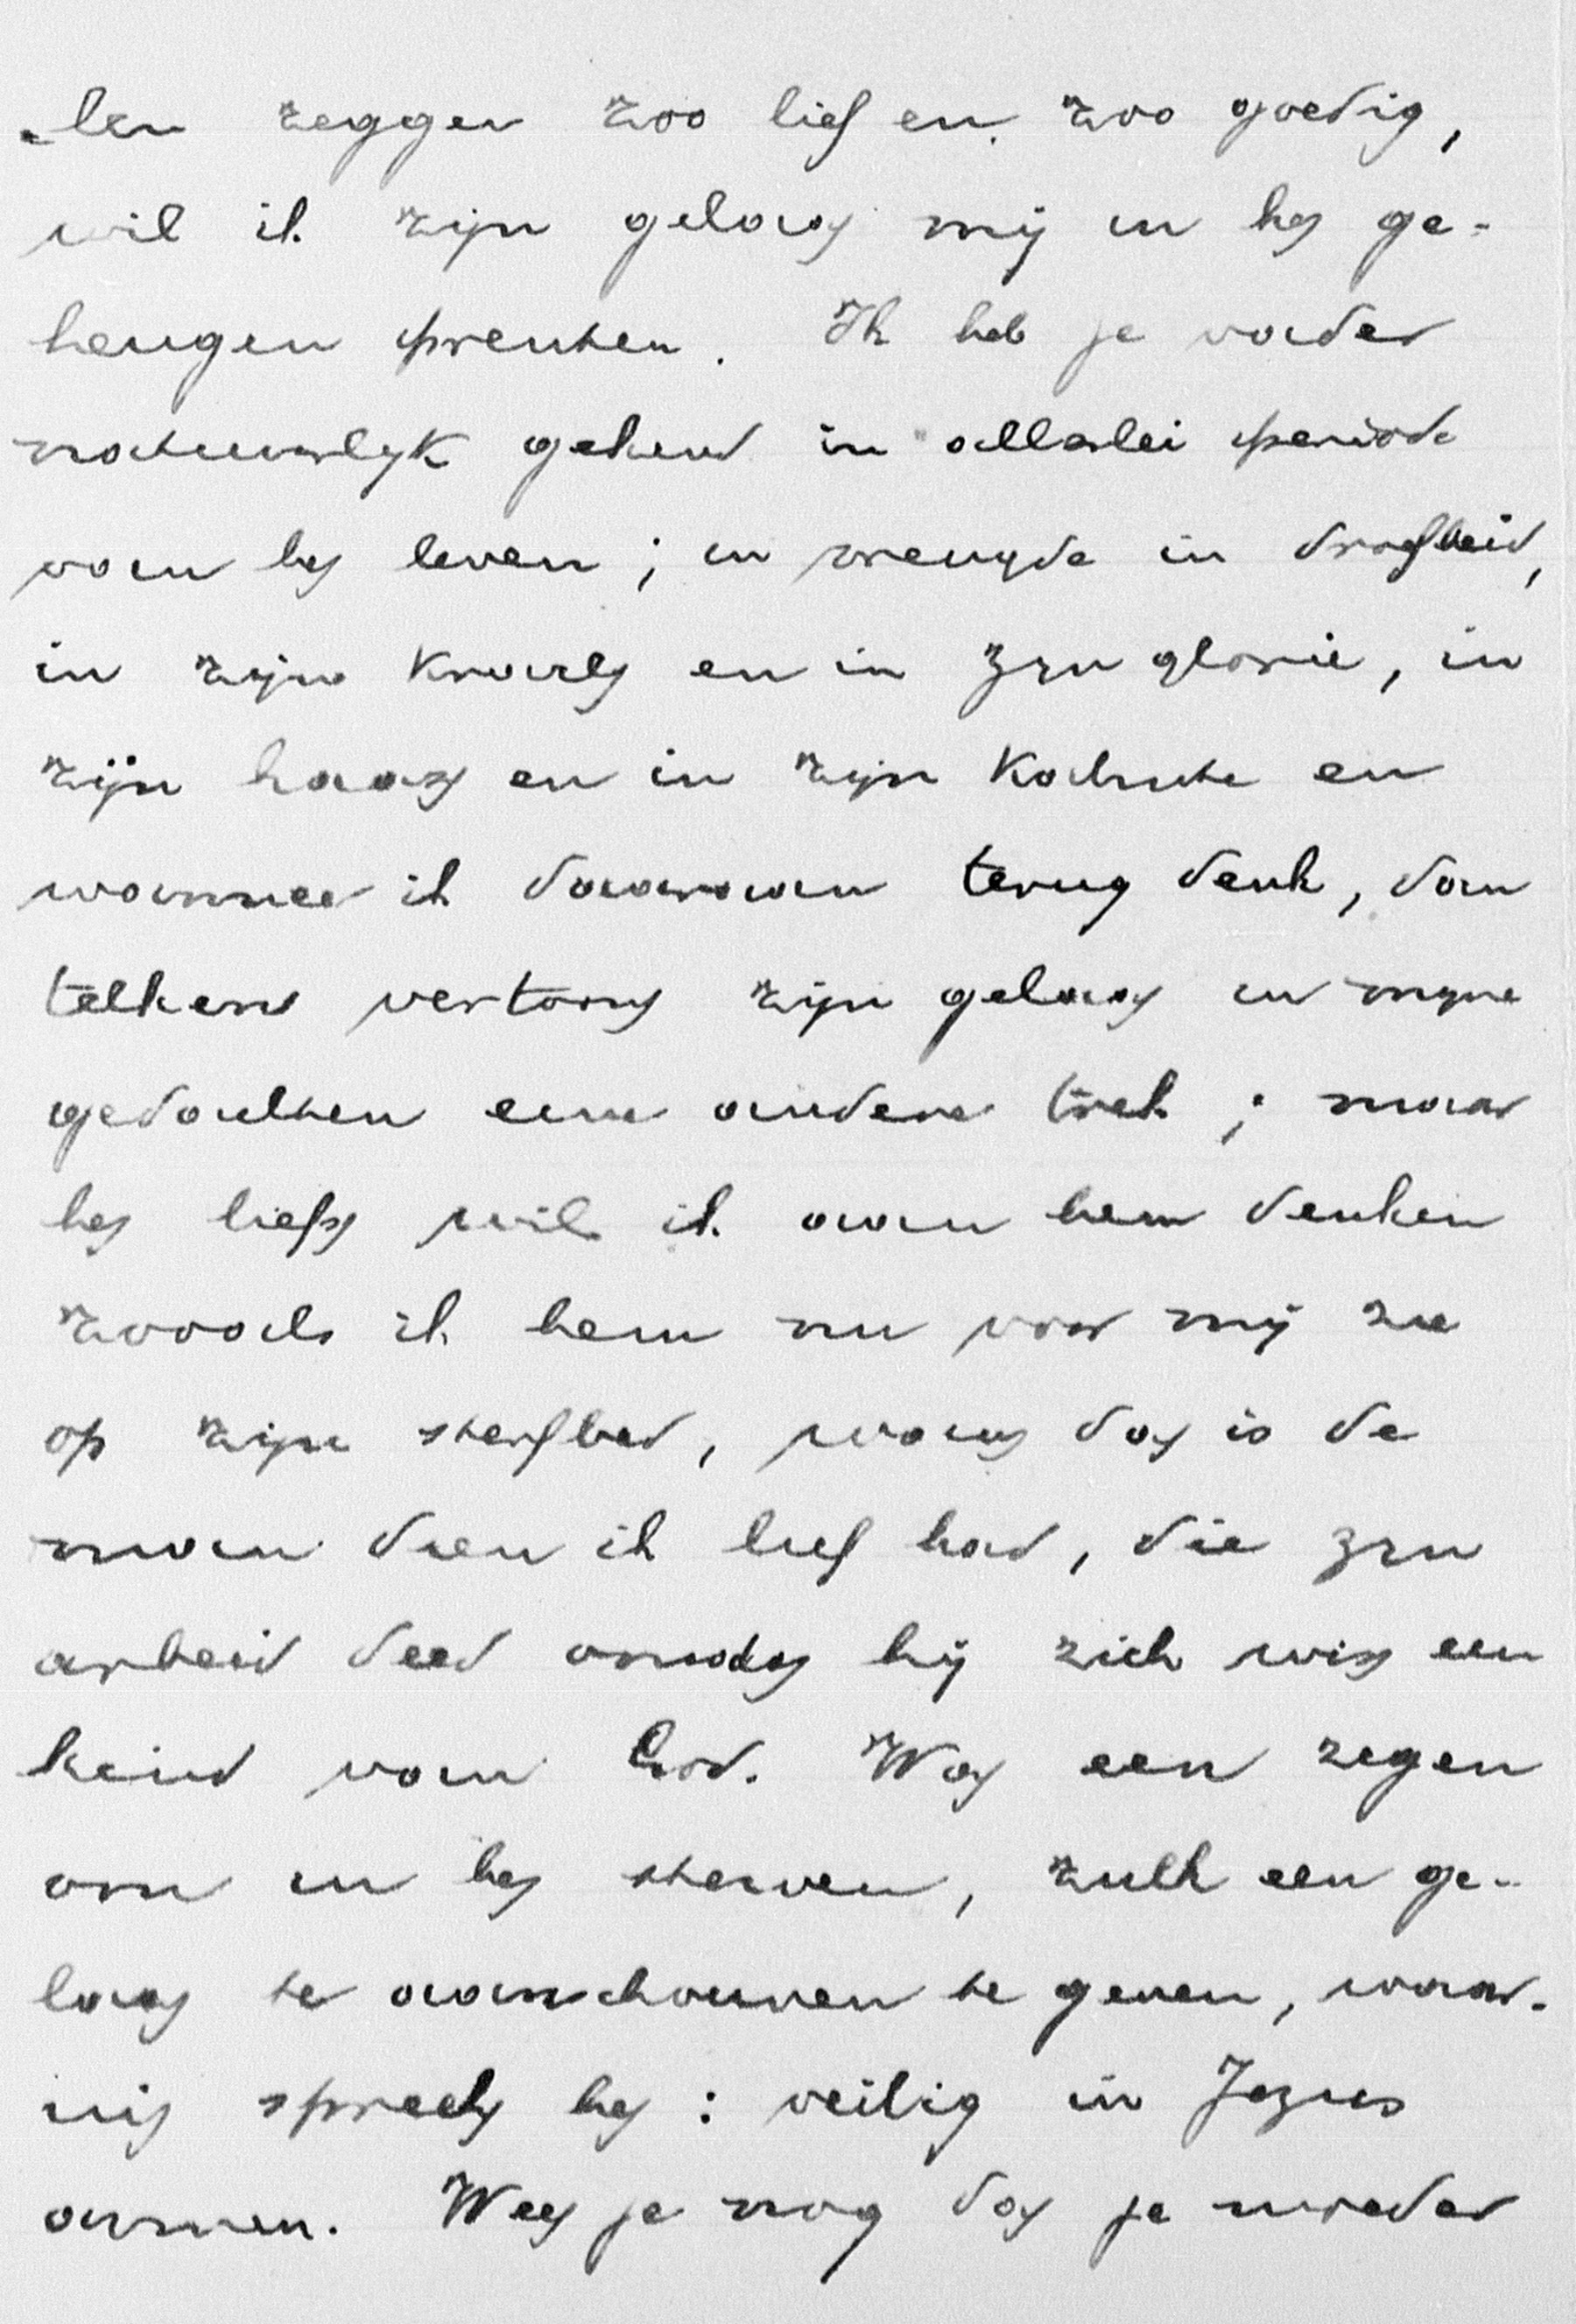 -len zeggen zoo lief en zoo goedig,
wil ik zijn gelaat mij in het ge-
heugen prenten. Ik heb je vader
natuurlyk gekend in allerlei periode
van het leven; in vreugde in droefheid,
in zijn kracht en in zyn glorie, in
zijn haast en in zijn kalmte en
wanneer ik daaraan terug denk, dan
telkens vertoont zijn gelaat in myne
gedachten eene andere trek; maar
het liefst wil ik aan hem denken
zooals ik hem nu voor mij zie
op zijn sterfbed, want dat is de
man dien ik lief had, die zyn
arbeid deed omdat hij zich wist een
kind van God. Wat een zegen
om in het sterven, zulk een ge-
laat te aanschouwen te geven, waar-
uit spreekt het: veilig in Jezus
armen. Weet je nog dat je moeder